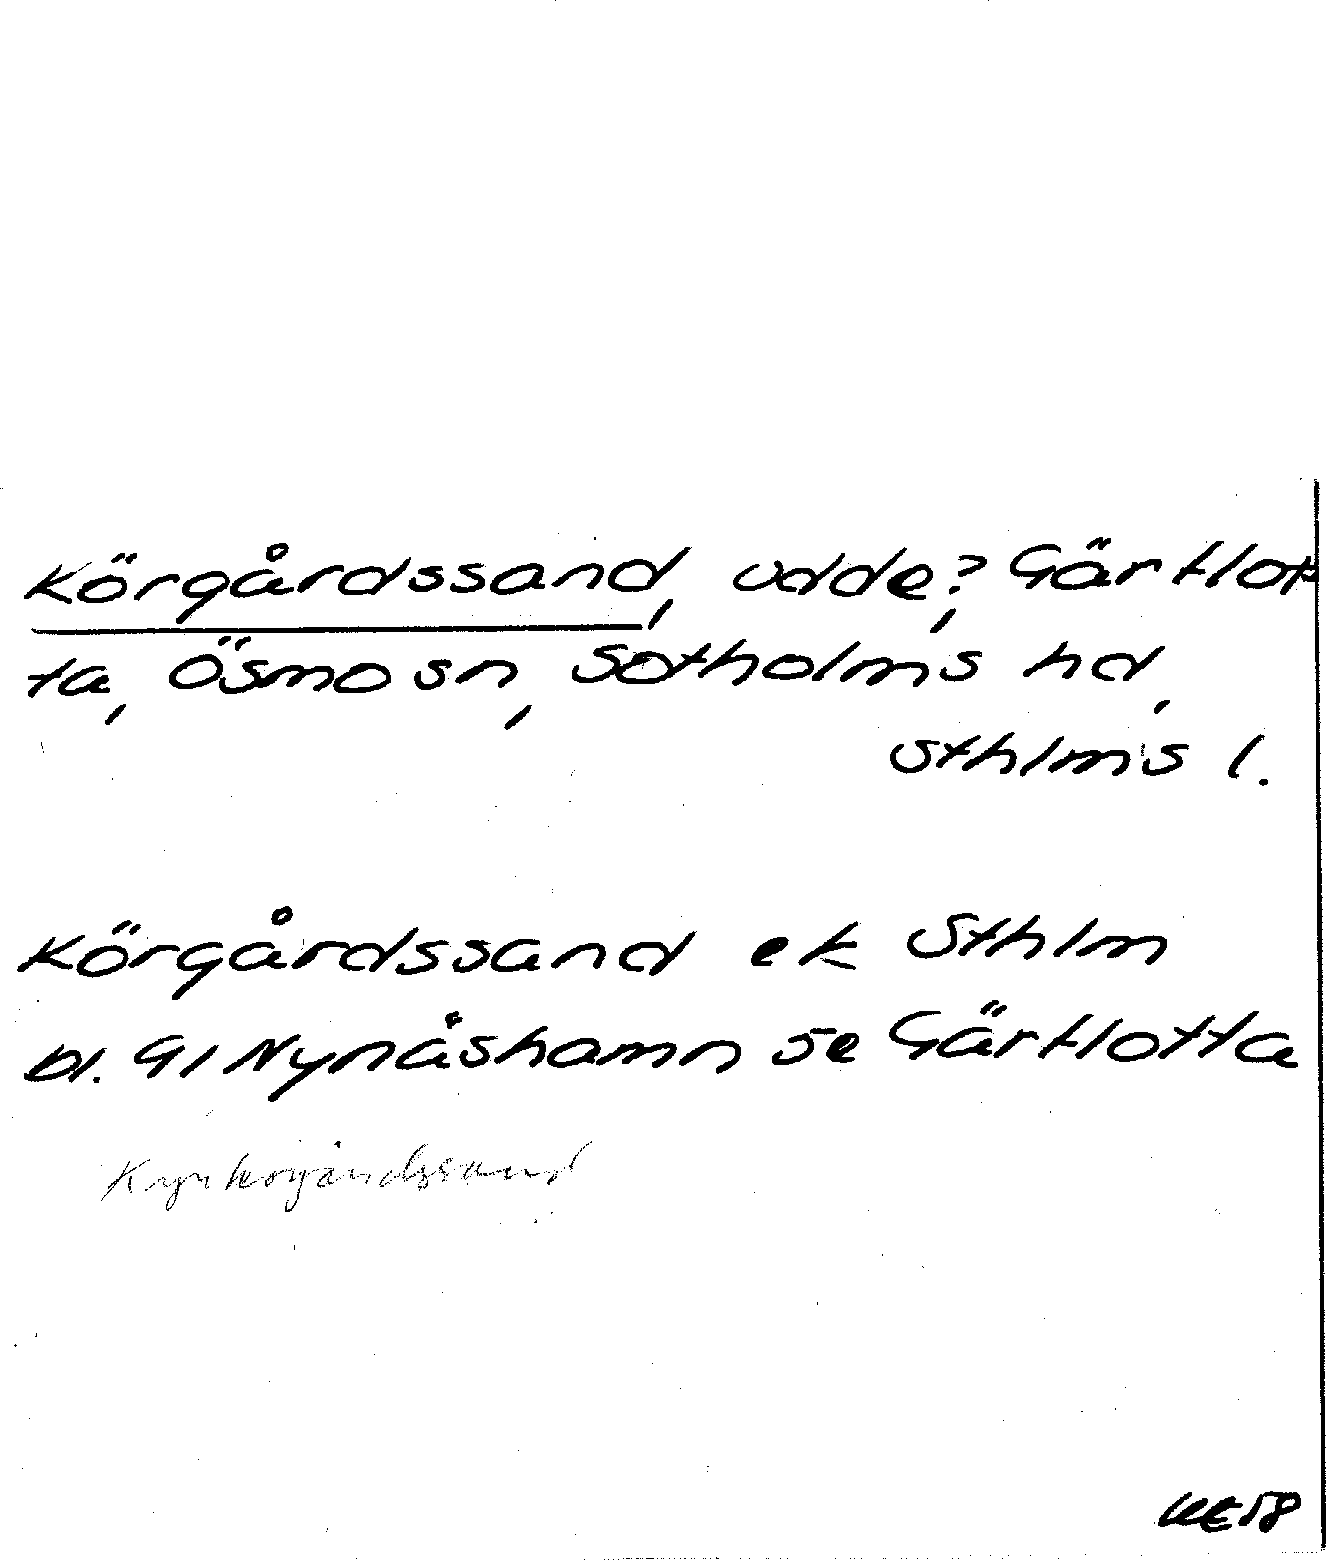 Körgårdssand, udde?, Gärtlot
ta, Ösmo sn, Sotholms hd,
Sthlms l.
Körgårdssand ek Sthlm
bl. 91 Nynäshamn se Gärtlotta